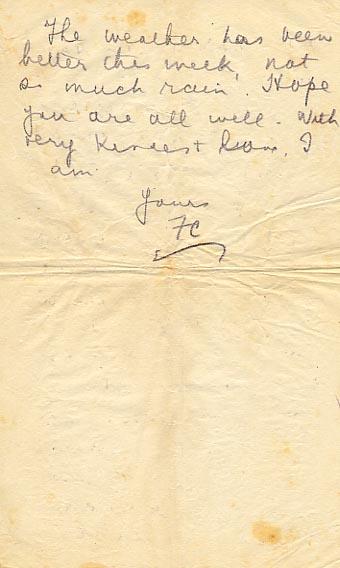 The weather has been
better this week, not
so much rain. Hope
you are all well. With
very Kindest Love, I
am
Yours
FC